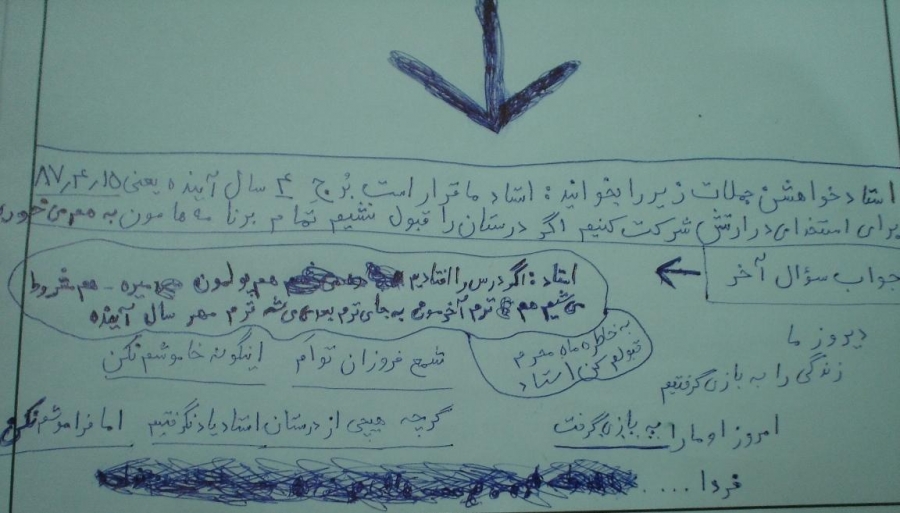 استاد خواهشن جملات زیر را بخوانید: استاد ما قرار است بُرجِ ۴ سال آینده یعنی ۸۷٫۴٫۱۵
برای استخدامی در ارتش شرکت کنیم اگر درستان را قبول نشیم تمام برنامه هامون به هم می خوره
جواب سؤال آخر
استاد: اگر درس را افتادیم هم پولمون میره - هم مشروط
می شیم هم ترم آخرمون به جای ترم بعد می شه ترم مهر سال آینده
به خاطره ماه محرم
قبولم کن استاد
دیروز ما
زندگی را به بازی گرفتیم
امروز او ما را به بازی گرفت
فردا .....
شمع فروزان توام اینگونه خاموشم نکن
گرچه هیچی از درستان استاد یاد نگرفتیم اما فراموشم نکن